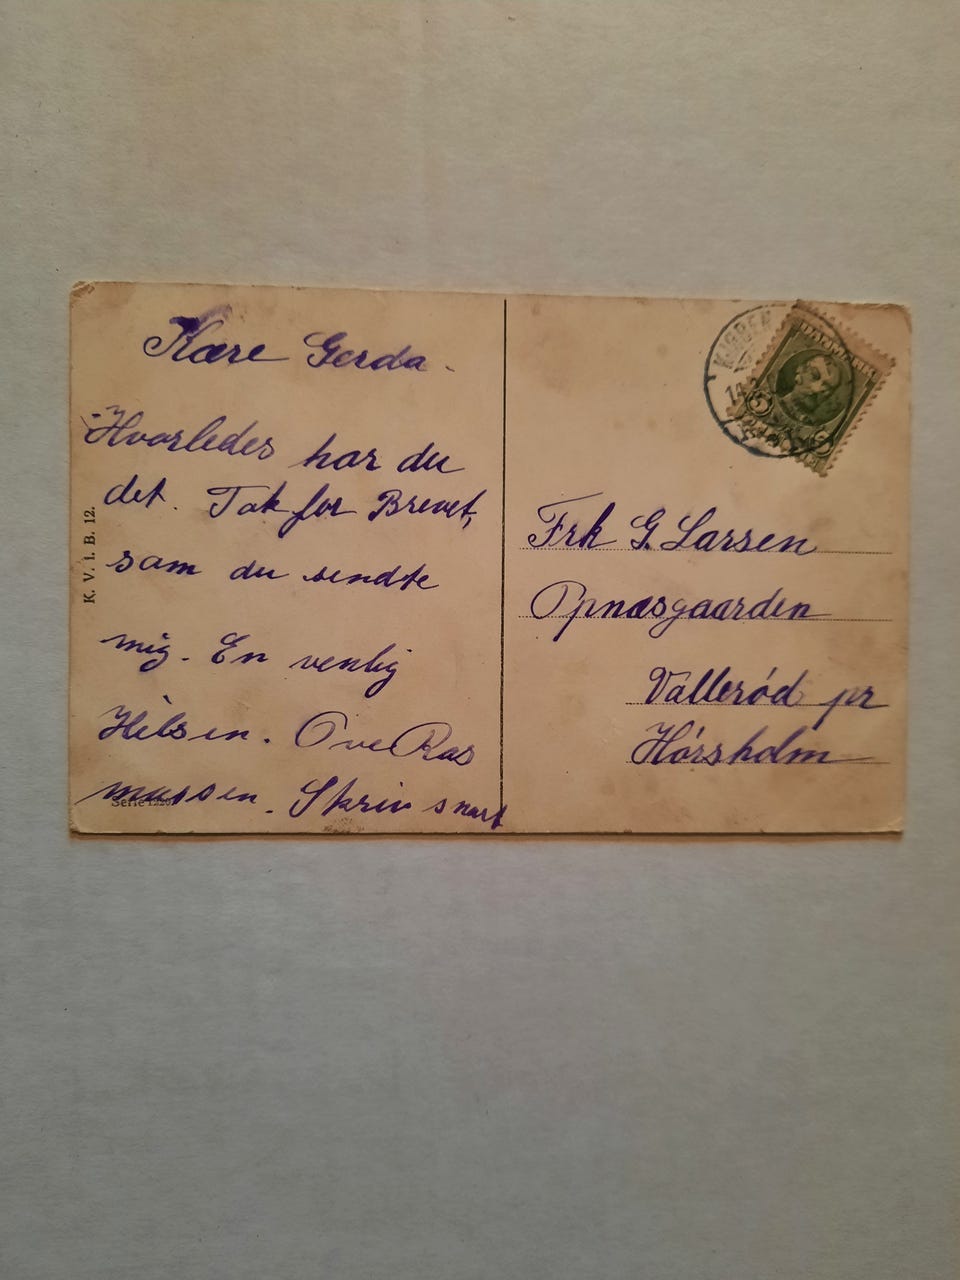 Kære Gerda.
Hvorledes har du
det. Tak for Brevet,
som du sendte
mig. En venlig
Hilsen. Ove Ras
mussen. Skriv snart
K. V. i. B. 12.
Serie
KJØBEN
14
DANMARK
5
Frk G. Larsen
Opnæsgaarden
Vallerød pr
Hørsholm